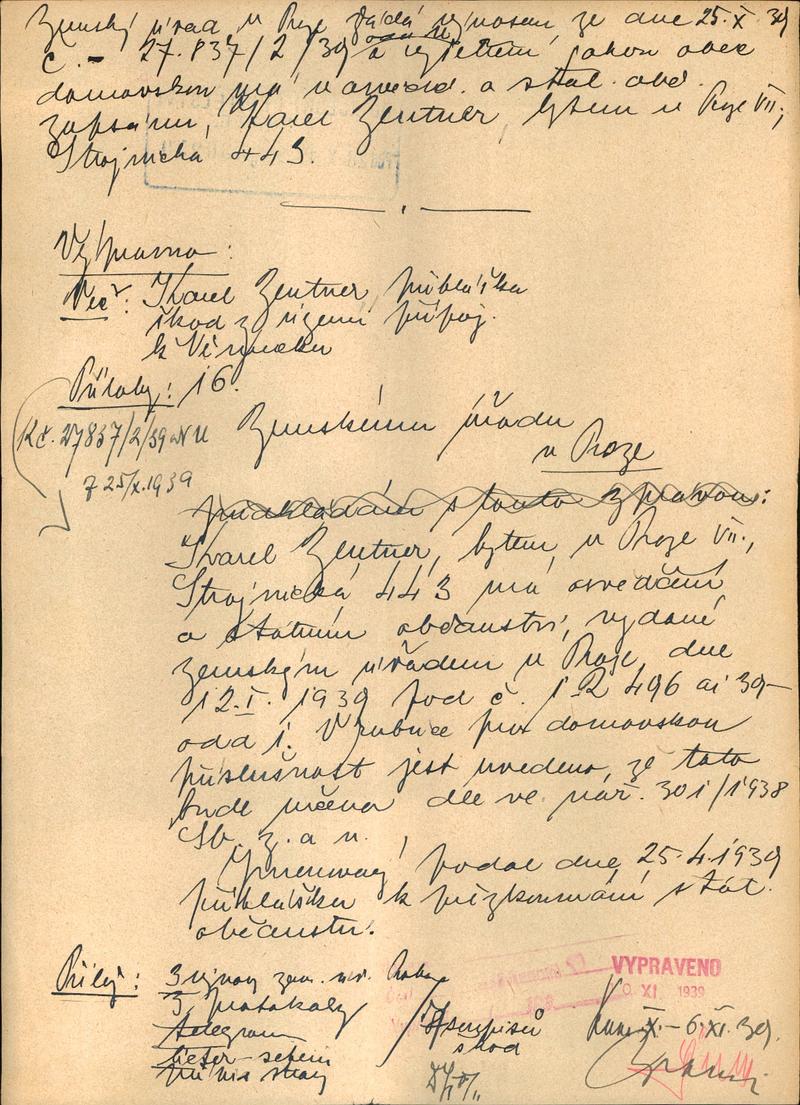 Zemský úřad v Praze žádá výnosem ze dne 25.X 39
č. - 27.837/2/39 o vyšetření jakou obec
domovskou má v osvěd. o stát. obč.
zapsánu, Karel Zentner, bytem v Praze VII;
Strojnická 443.
Výpravna:
Věc: Karel Zentner přihláška
škod z území připoj.
k Německu
Přílohy: 16.
K č. 27837/2/39
z 25/X.1939
Zemskému úřadu
v Praze
předkládám s touto zprávou:
Karel Zentner, bytem v Praze VII.,
Strojnická 443 má osvědčení
o státním občanství, vydané
zemským úřadem v Praze, dne
12.I. 1939 pod č. 496 ai 39
odd 1. V rubrice pro domovskou
příslušnost jest uvedeno, že tato
bude určena dle vl. nař. 301/1938
Sb. z. a n.
Jmenovaný podal dne 25.4.1939
přihlášku k přezkoumání stát.
občanství.
Příloh: 3 výnosy zem. úř. Praha
3 protokoly
telegram
7 soupisů
škod
VYPRAVENO
XI 1939
X. - 6.XI.39.